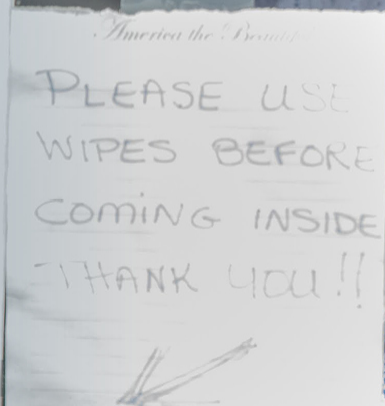 America the Beautif
PLEASE USE
WIPES BEFORE
COMiNG INSIDE
THANK YOU!!